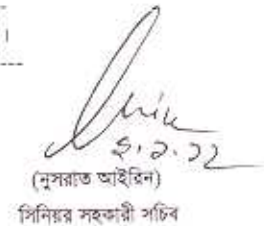 ২.১.22
(নুসরাত আইরিন)
সিনিয়র সহকারী সচিব